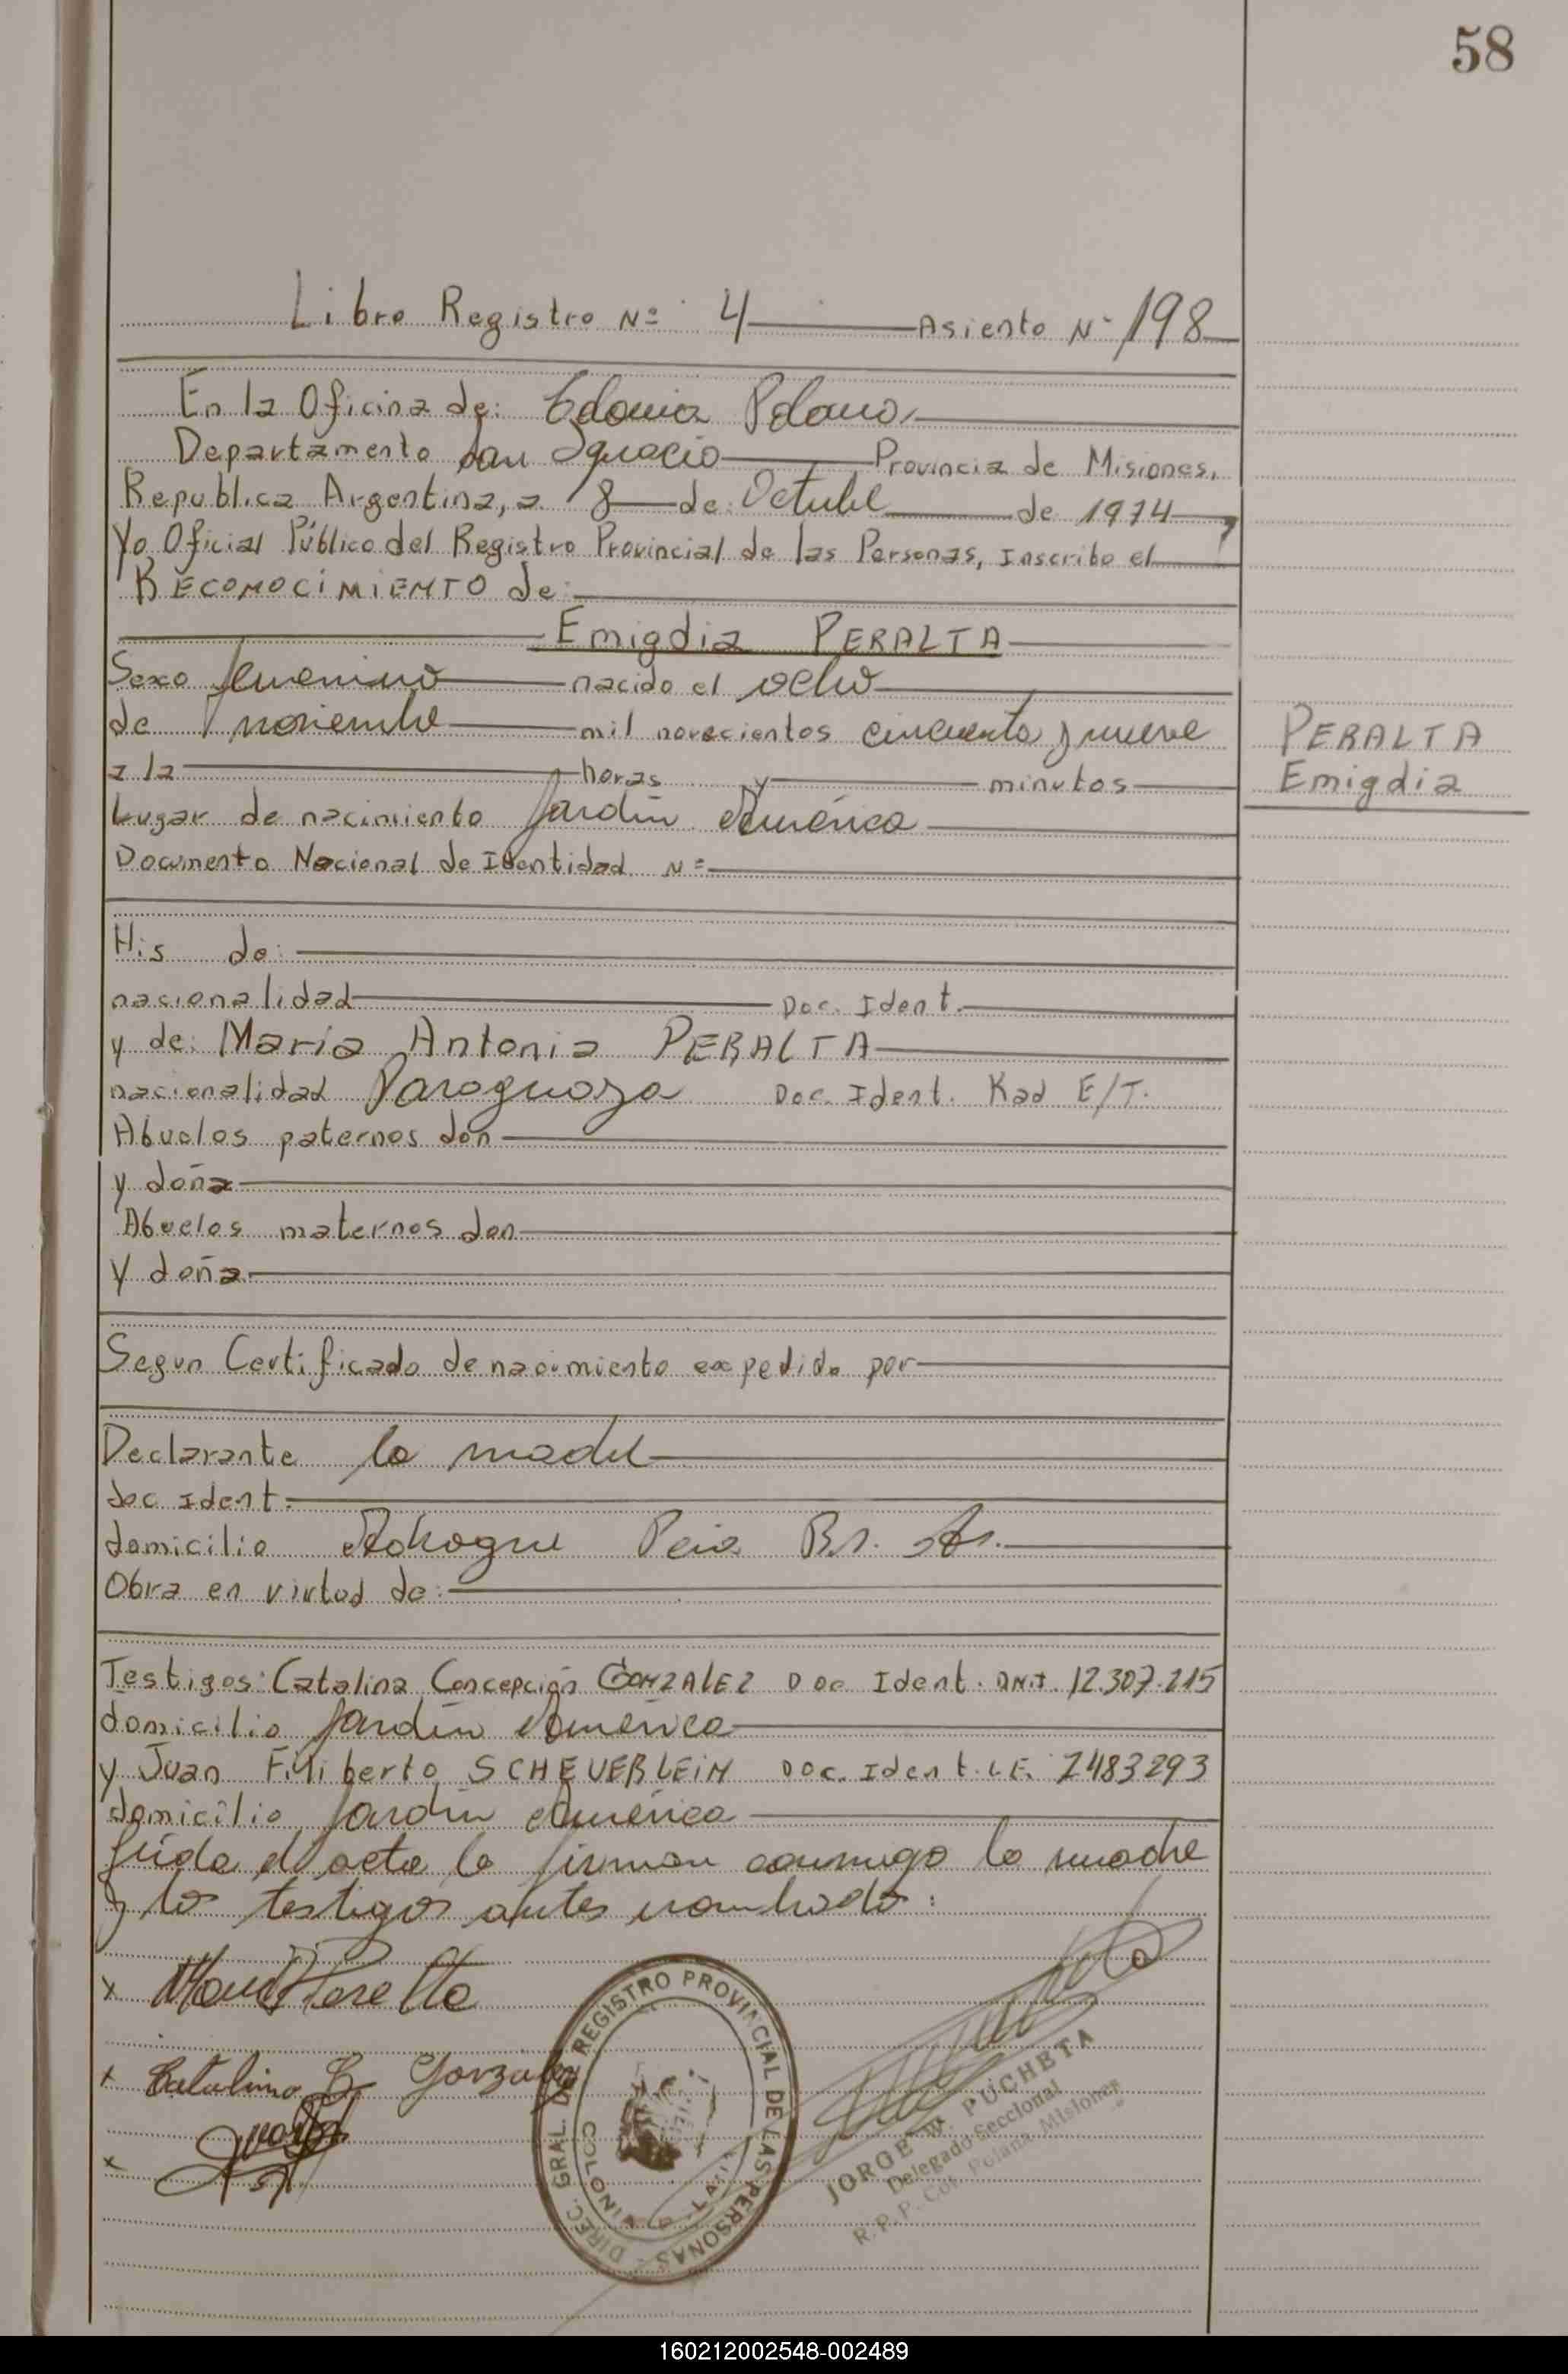 58
Libro Registro Nº 4 Asiento Nº 198
En la Oficina de: Colonia Polana,
Departamento San Ignacio Provincia de Misiones,
Republica Argentina, a 8 de Octubre de 1974
Yo Oficial Público del Registro Provincial de las Personas, Inscribo el
RECONOCIMIENTO de
Emigdia PERALTA
Sexo femenino nacido el ocho
de noviembre mil novecientos cincuenta y nueve
PERALTA
a la horas y minutos
Emigdia
Lugar de nacimiento Jardín América
Documento Nacional de Identidad Nº
His de:
nacionalidad Doc. Ident.
y de: María Antonia PERALTA
nacionalidad Paraguaya Doc. Ident. Kad E/T.
Abuelos paternos don
y doña
Abuelos maternos don
y doña
Segun Certificado de nacimiento expedido por
Declarante la madre
doc ident.
domicilio Adrogue Pcia. Bs. As.
Obra en virtud de:
Testigos: Catalina Concepción GONZALEZ Doc Ident. DNI. 12.307.215
domicilio Jardín América
y Juan Filiberto SCHEUERLEIN Doc. Ident. L.E. 7483293
domicilio Jardín América
Leída el acta la firman conmigo la madre
y los testigos antes nombrado:
x Peralta
x Catalina C. Gonzalez
x
DIREC. GRAL. DE REGISTRO PROVINCIAL DE LAS PERSONAS
JORGE W. PUCHETA
Delegado Seccional
R. P. P. Col. Polana Misiones
160212002548-002489